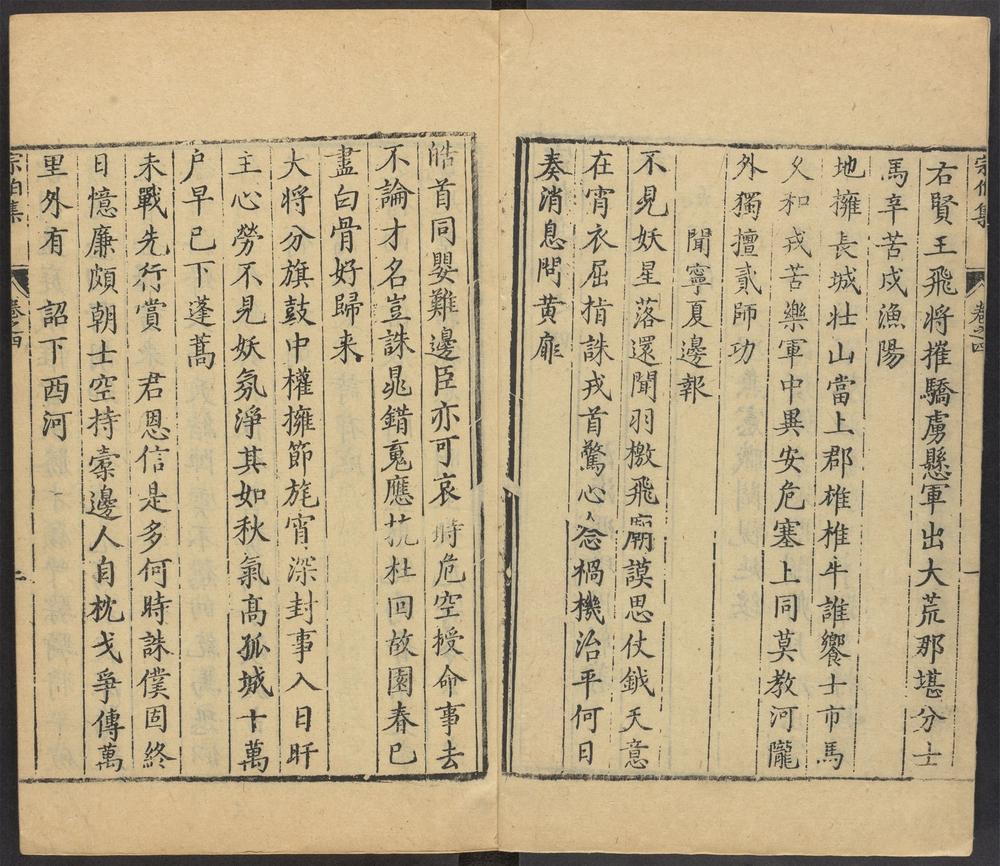 宗伯集
卷之四
一
右賢王飛將摧驕虜懸軍出大荒那堪分士
馬辛苦戍漁陽
地擁長城壯山當上郡雄椎牛誰饗士市馬
又和戎苦樂軍中異安危塞上同莫教河隴
外獨擅貳師功
聞寧夏邊報
不見妖星落還聞羽檄飛廟謨思仗鉞天意
在宵衣屈指誅戎首驚心念禍機治平何日
奏消息問黄扉
皓首同嬰難邊臣亦可哀時危空授命事去
不論才名豈誅鼂錯䰟應抗杜回故園春已
盡白骨好歸来
大將分旗鼓中權擁節旄宵深封事入日旰
主心勞不見妖氛淨其如秋氣髙孤城十萬
户早已下蓬蒿
未戰先行賞 君恩信是多何時誅僕固終
日憶廉頗朝士空持橐邊人自枕戈爭傳萬
里外有 詔下西河
宗伯集
卷之四
二